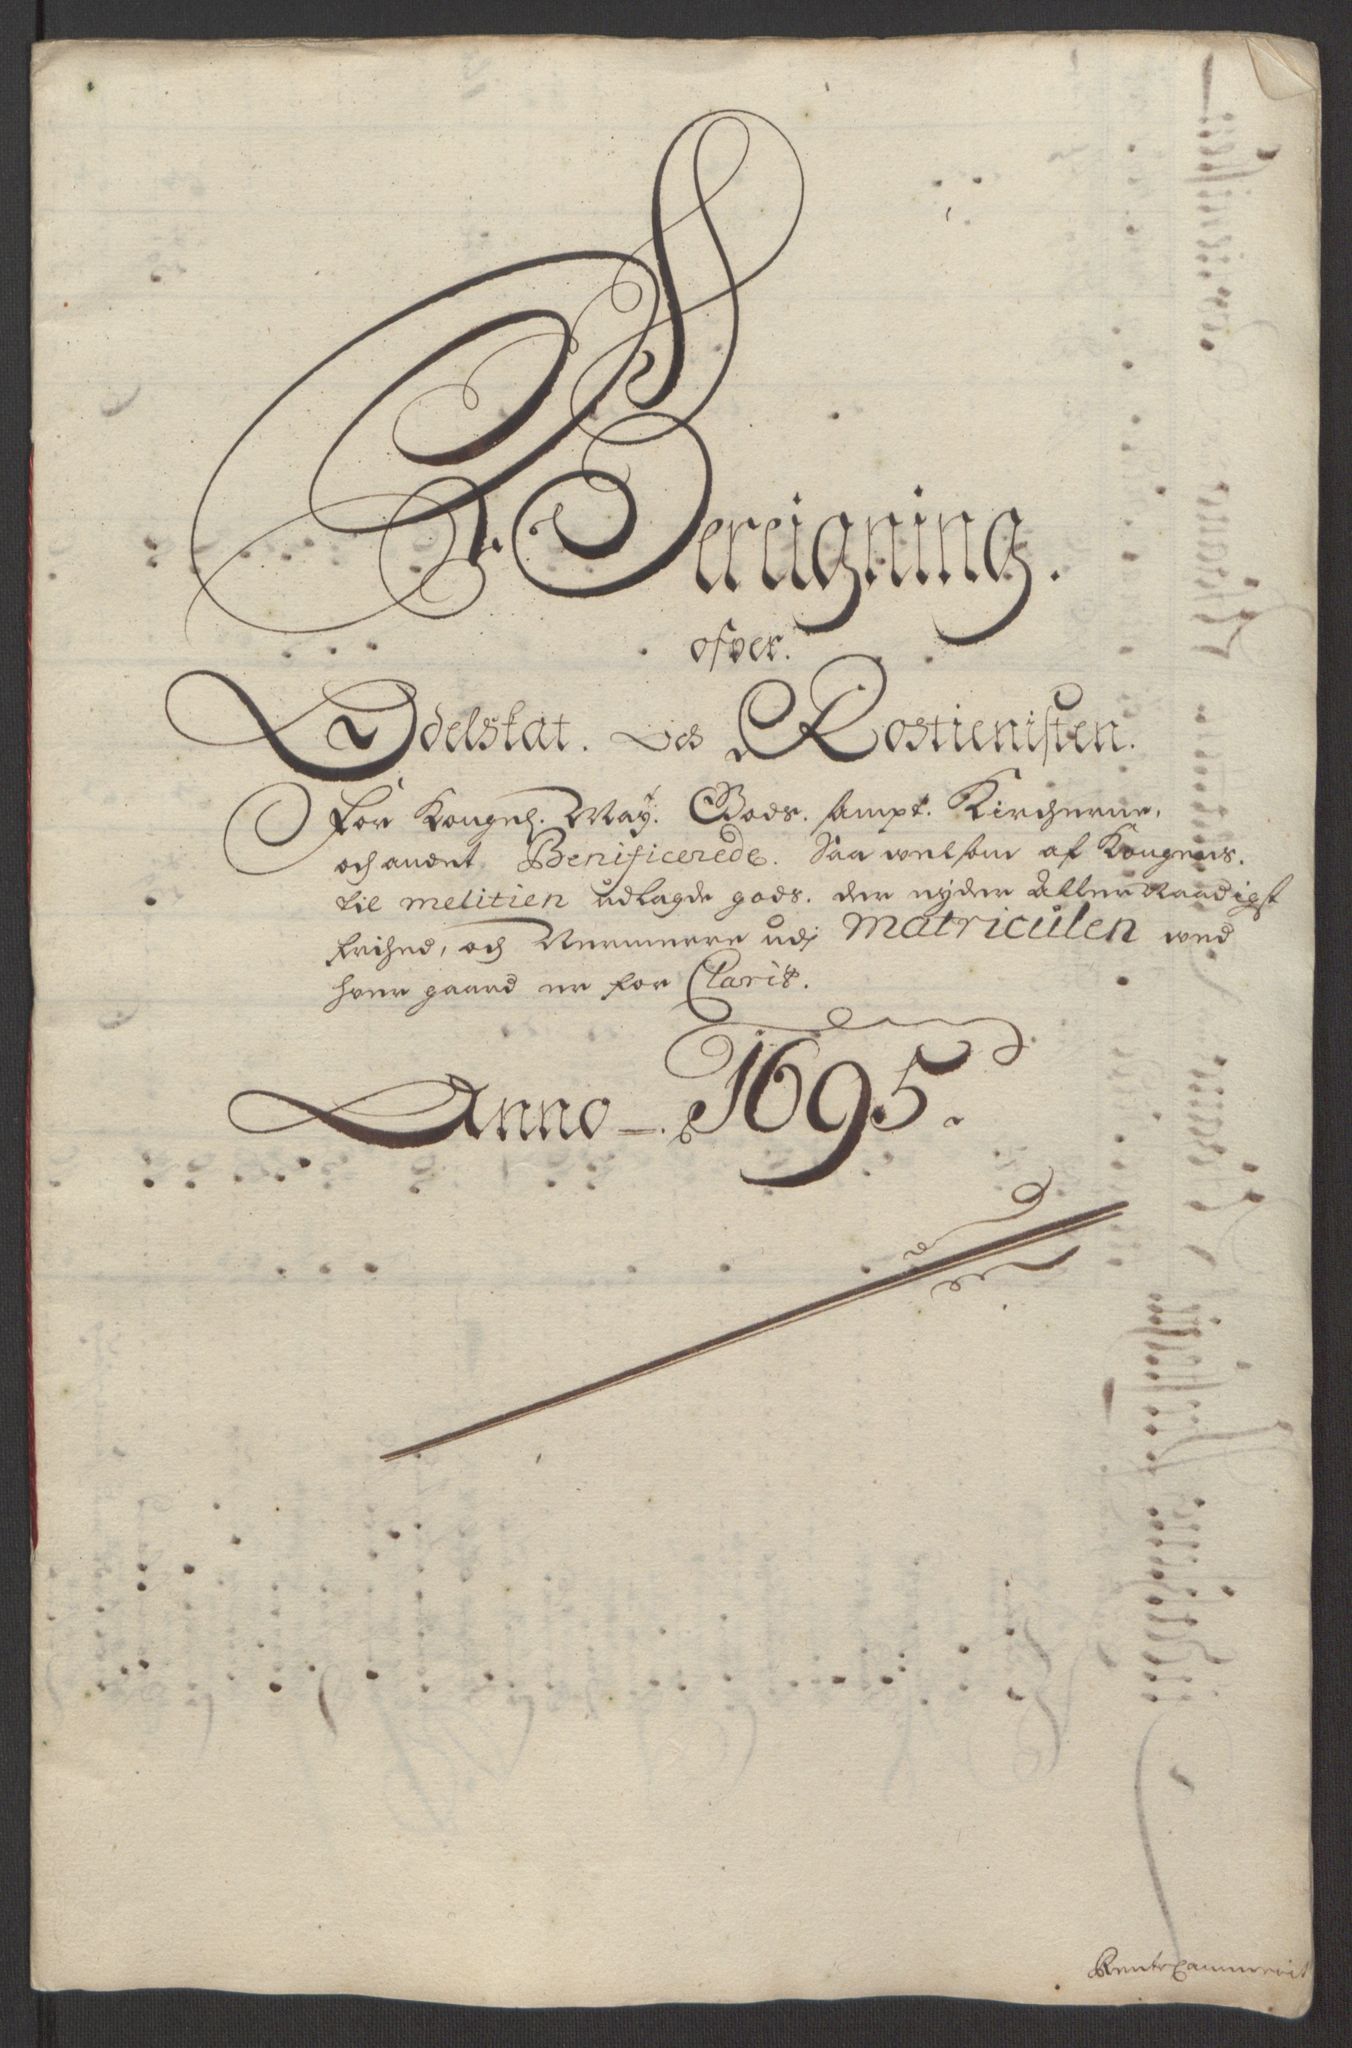 Bereigning.
ofver.
Odelskat. och Rostienisten.
for Kongel. May. Gods. sampt. Kircherne,
och andet Benificerede. Saa velsom af Kongens.
til melitien udlagde gods. der nyder Aller Naadigst
frihed, och Nermere udj Matriculen ved
hver gaard er for Clarit.
Anno 1695.
RenteCammerit